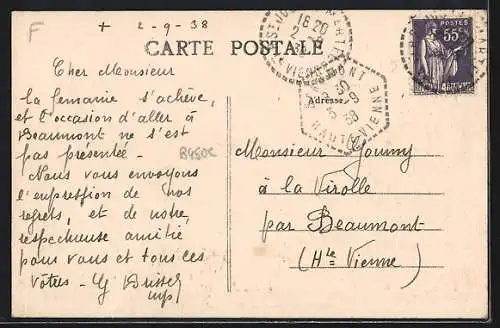 F
+ 2-9-38
CARTE POSTALE
Cher Monsieur
La semaine s'achève,
et l'occasion d'aller à
Beaumont ne s'est
pas présentée -
Nous vous envoyons
l'expression de nos
regrets, et de notre
respectueuse amitié
pour vous et tous les
vôtres -
B450C
16 20
2 -9
VIENNE
55c
Adresse
BEAUMONT
HAUTE VIENNE
Monsieur
à la Virolle
par Beaumont
(Hte Vienne)